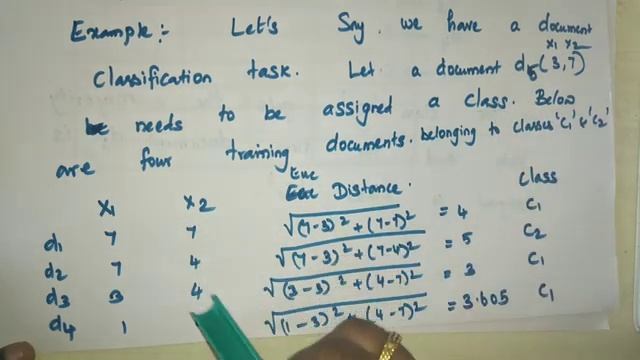 Example:- Let's Say, we have a document
x1 x2
Classification task. Let a document d5(3,7)
needs to be assigned a class. Below
are four training documents. belonging to classes 'c1' & 'c2'
Euc Distance. Class
x1 x2
d1 7 7 √(7-3)² + (7-7)² = 4 C1
d2 7 4 √(7-3)² + (7-4)² = 5 C2
d3 3 4 √(3-3)² + (4-7)² = 3 C1
d4 1 √(1-3)² + (4-7)² = 3.605 C1